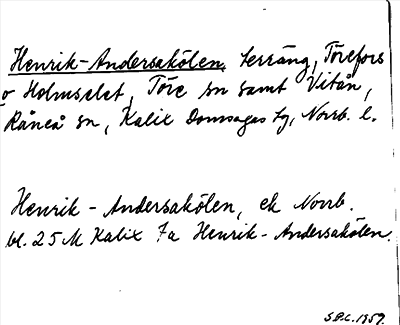 Henrik-Andersakölen, terräng, Törefors
o Holmselet, Töre sn samt Vitån,
Råneå sn, Kalix Domsagas tg, Norrb. l.
Henrik - Andersakölen, ek Norrb.
bl. 25 M Kalix 7a Henrik-Andersakölen.
S.B.C. 1959.